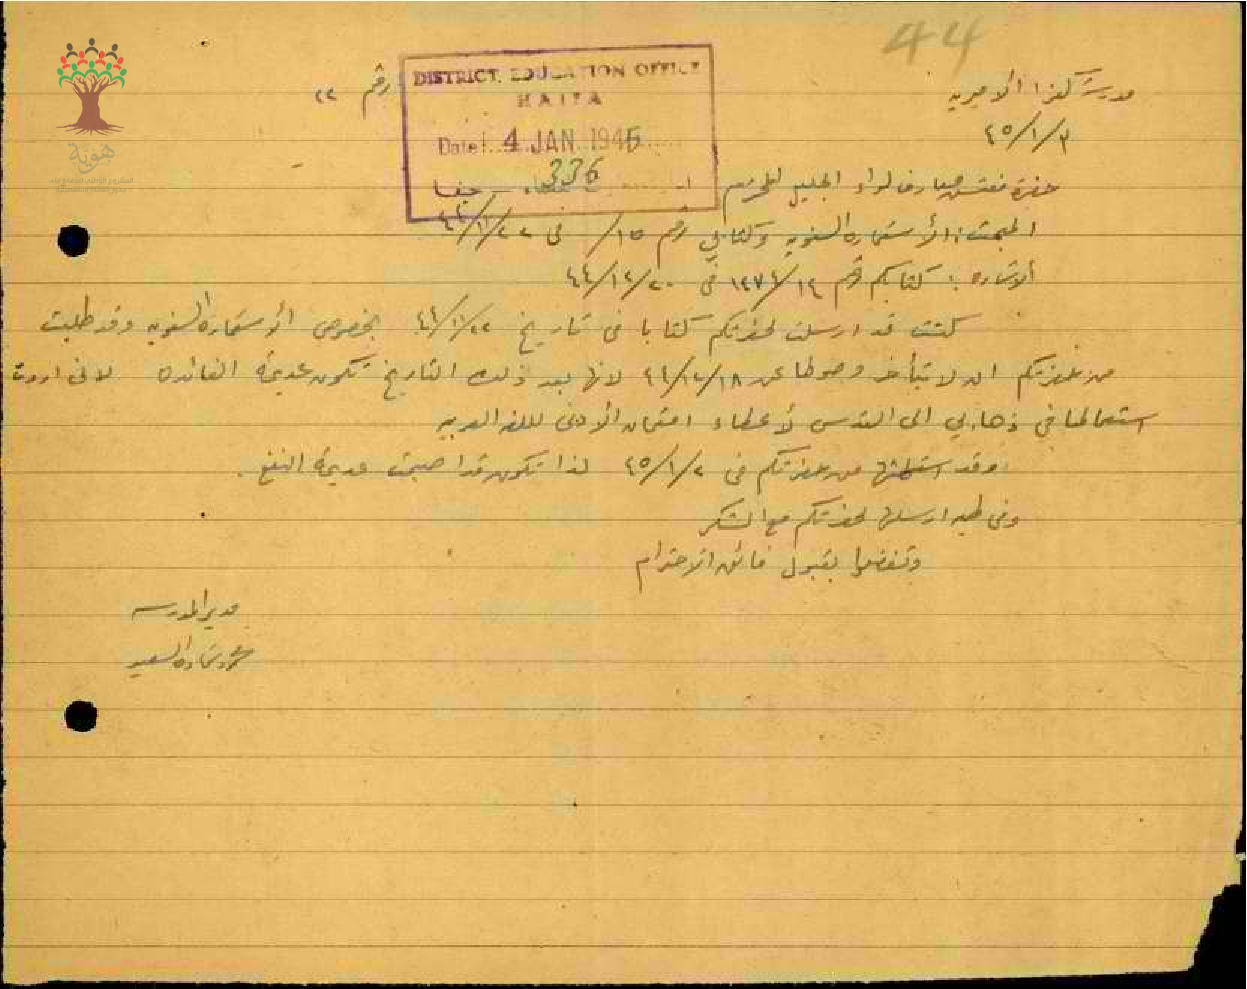 44
مدرسة كفرا الاميرية
رقم ٢٢
٤٥/١/٣
DISTRICT EDUCATION OFFICE
HAIFA
Date 4 JAN 1945
336
حيفا
حضرة مفتش معارف لواء الجليل المحترم
المبحث: الأستمارة السنويه وكتابي رقم ١٥/ في ٤٤/١١/٢٢
الاشاره: كتابكم رقم ١٢٧٤/١٤ في ٤٤/١٢/٢٠
كنت قد ارسلت لحضرتكم كتابا في تاريخ ٤٤/١١/٢٢ بخصوص الأستمارة السنويه وقد طلبت
من حضرتكم ان لا يتأخر وصولها عن ٤٤/١٢/١٨ لانها بعد ذلك التاريخ تكون عديمة الفائده لاني اردت
استعمالها في ذهابي الى القدس لأعطاء امتحان الأدنى للغه العربيه
وقد استلمتها من حضرتكم في ٤٥/١/٢ لذا تكون قد اصبحت عديمة النفع.
وفي طيه ارسلها لحضرتكم مع الشكر
وتفضلوا بقبول فائق الاحترام
مدير المدرسه
السعيد
هوية